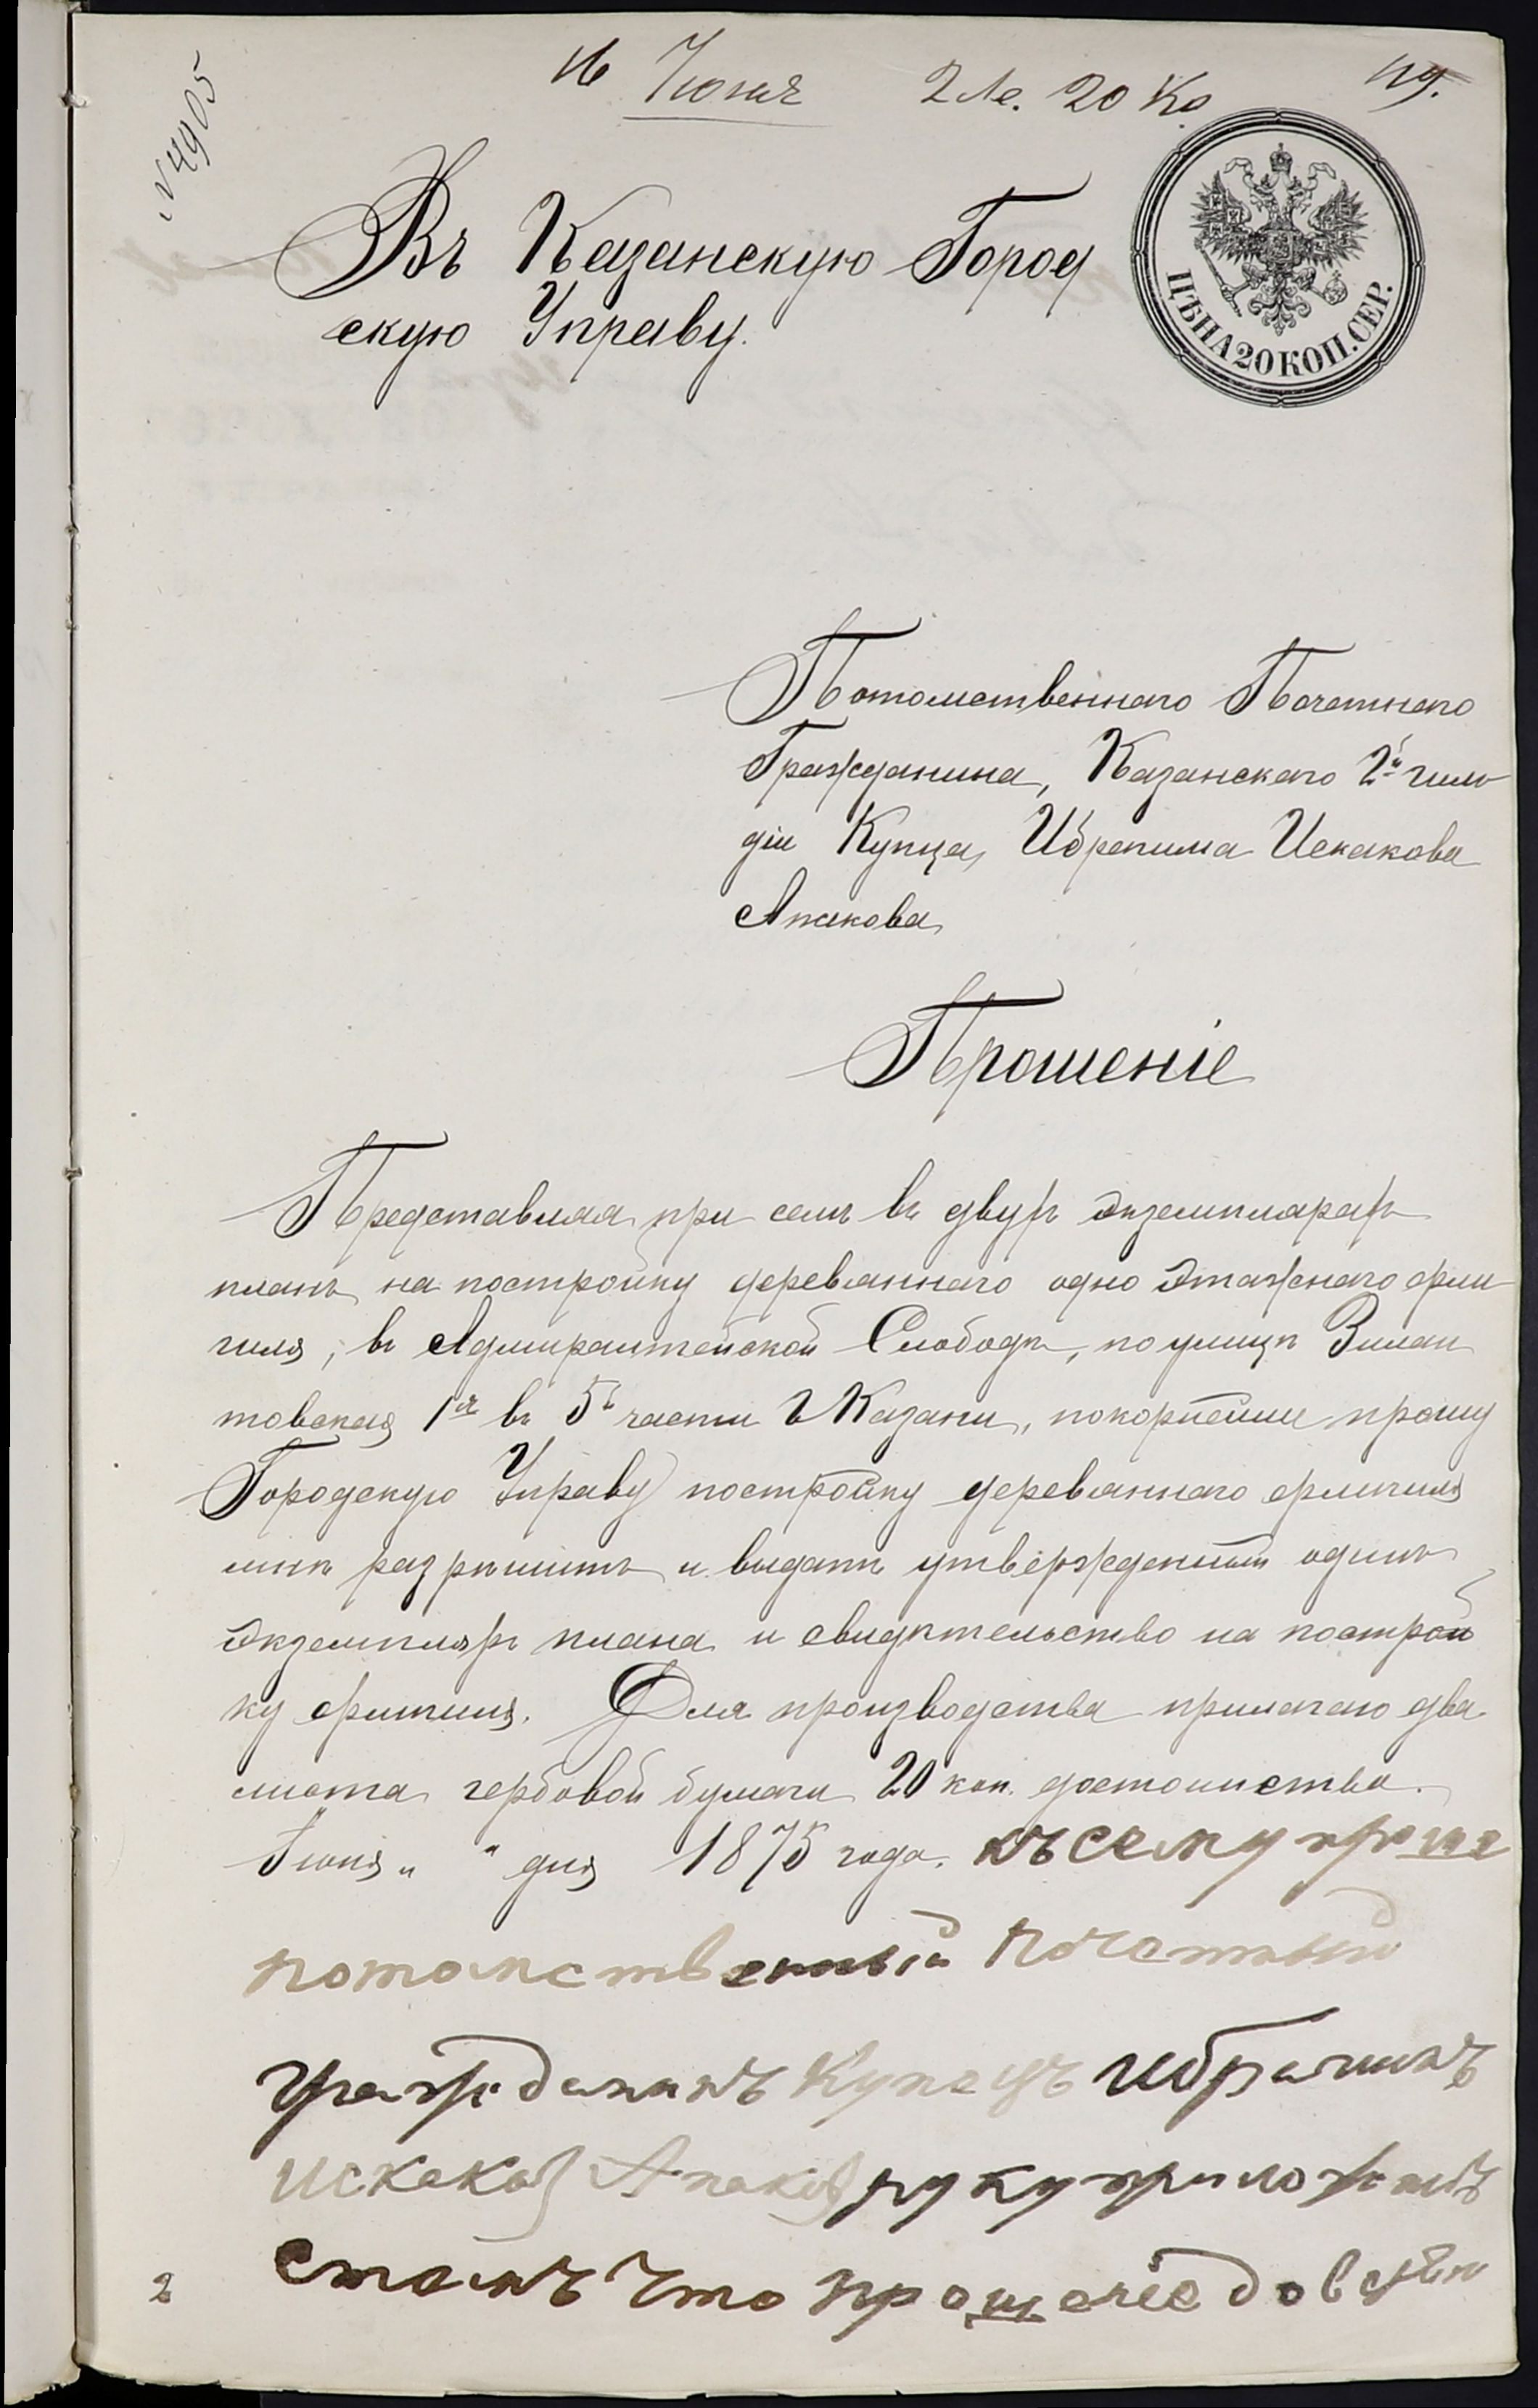 16 Іюня 2 Ле. 20 Ко
119.
№ 4905
Въ Казанскую Город
скую Управу.
ЦѢНА 20 КОП. СЕР.
Потомственнаго Почетнаго
Гражданина, Казанскаго 2й гиль
діи Купца, Ибрагима Искакова
Апакова
Прошеніе
Представляя при семъ въ двухъ экземплярахъ
планъ на постройку деревяннаго одно этажнаго фли
гиля, въ Адмиралтейской Слободѣ, по улицѣ Зилан
товская 1я въ 5й части г Казани, покорнейше прошу
Городскую Управу постройку деревяннаго флигиля
мнѣ разрѣшить и выдать утвержденный одинъ
экземпляръ плана и свидѣтельство на построй
ку флигиля. Для производства прилагаю два
листа гербовой бумаги 20 коп. достоинства.
Іюня „ " дня 1875 года. къ сему проше
потомственный почетный
гражданинъ купецъ Ибрагимъ
Искаковъ Апаковъ руку приложилъ
стомъ что прошение довѣряю
2